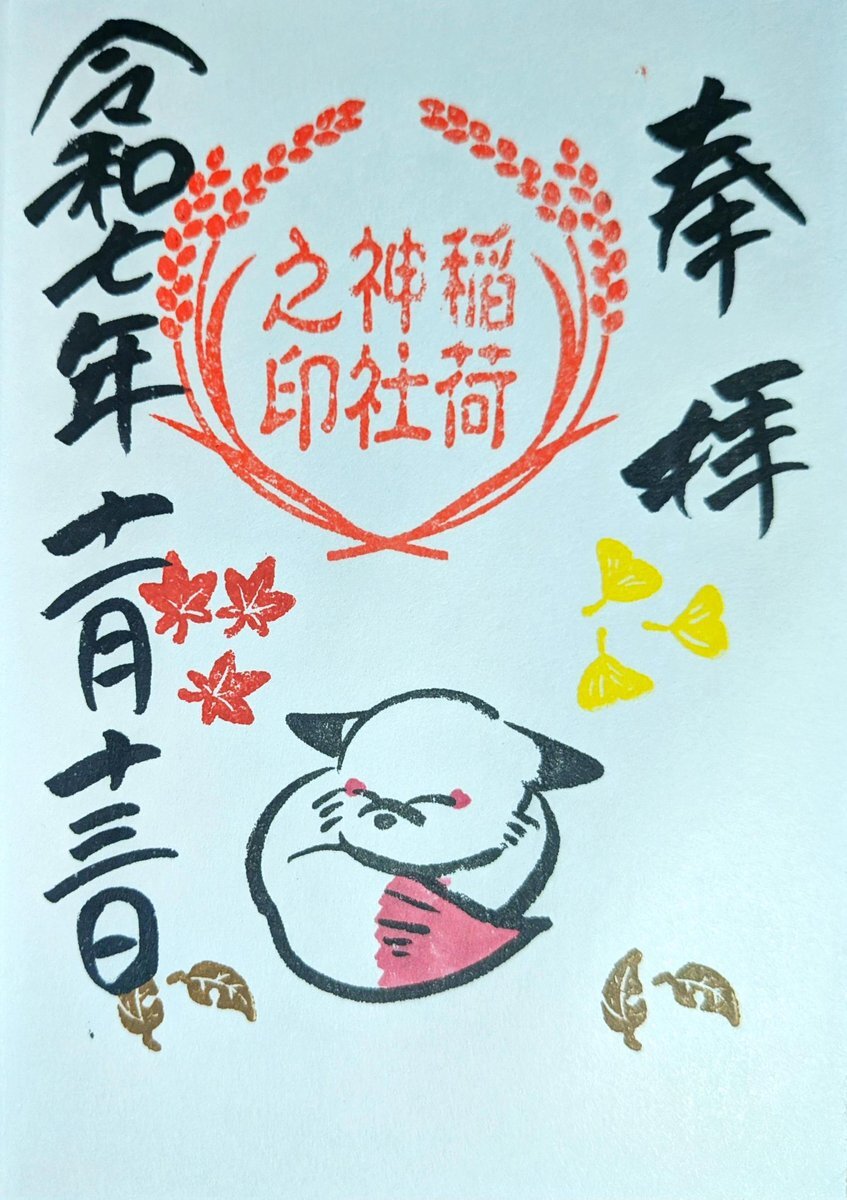 奉拝
稲荷
神社
之印
令和七年十一月十三日